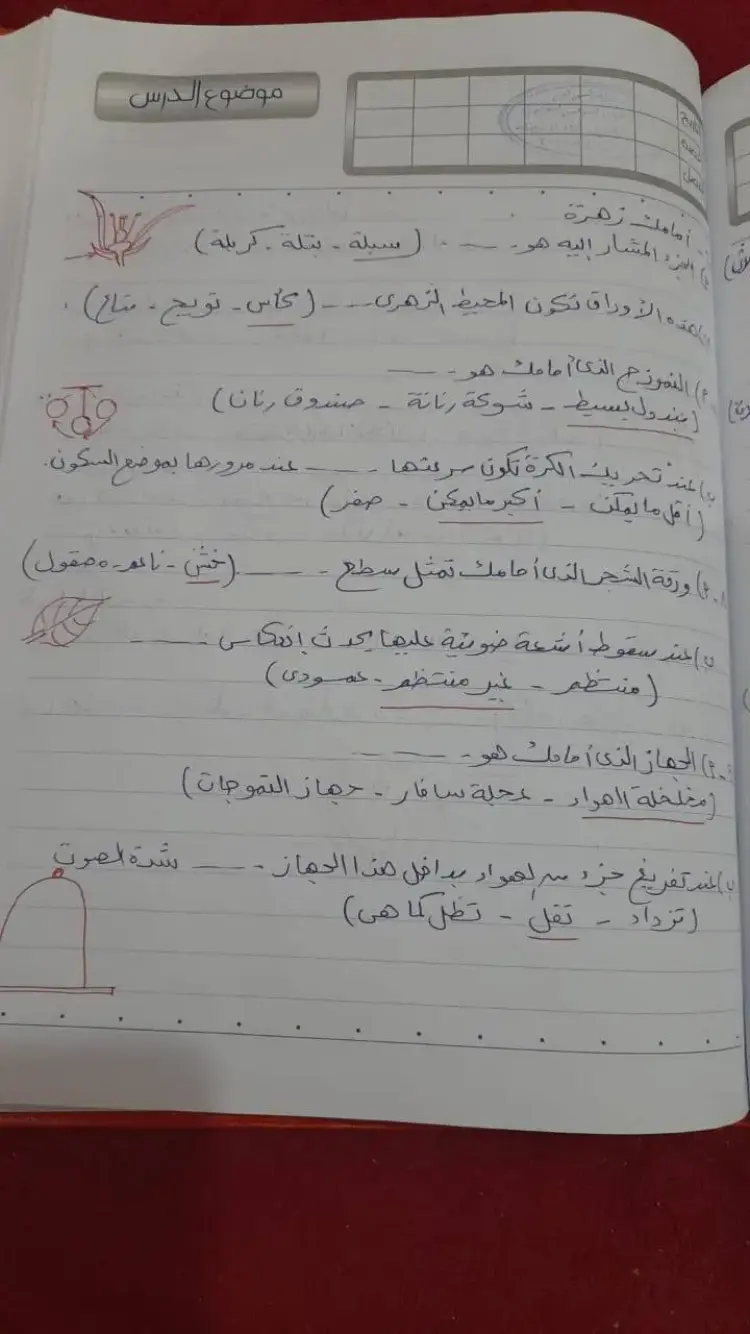 موضوع الدرس
أمامك زهرة
أ) الجزء المشار إليه هو ---- (سبلة - بتلة - كربلة)
ب) هذه الأوراق تكون المحيط الزهرى --- (كأس - تويج - متاع).
أ) النموذج الذى أمامك هو ----
(بندول بسيط - شوكة رنانة - صندوق رنان)
ب) عند تحريك الكرة تكون سرعتها ---- عند مرورها بموضع السكون.
(أقل ما يمكن - أكبر ما يمكن - صفر)
أ) ورقة الشجر الذى أمامك تمثل سطح ---- (خشن - ناعم - مصقول)
ب) عند سقوط أشعة ضوئية عليها يحدث إنعكاس ----
(منتظم - غير منتظم - عمودى)
أ) الجهاز الذى أمامك هو ----
(مخلخلة الهواء - عجلة سافار - جهاز التموجات)
ب) عند تفريغ جزء من الهواء بداخل هذا الجهاز ---- شدة الصوت
(تزداد - تقل - تظل كما هى)